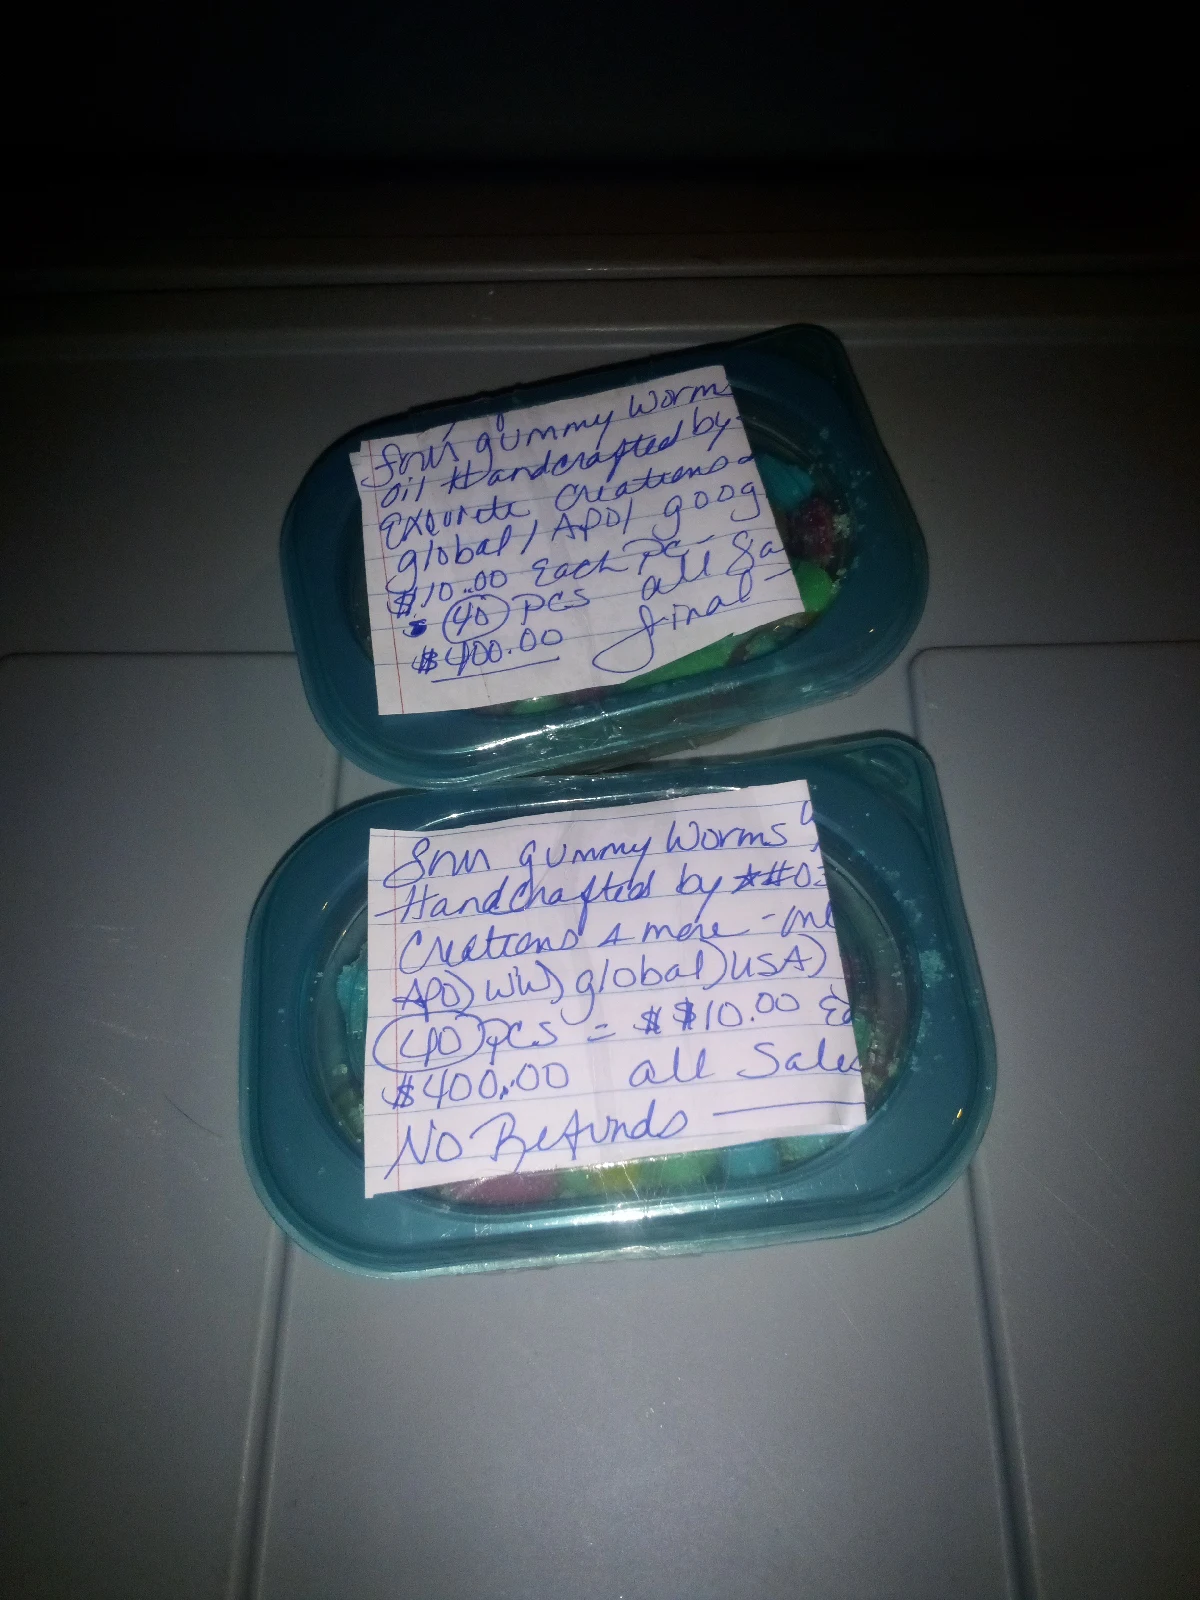 Sour gummy Worm
oil Handcrafted by
Exquisite Creations
global / APO / goog
$10.00 Each Pc
(40) pcs all Sa
$400.00 final
Sour gummy Worms
Handcrafted by *#03
Creations & more -
APO) WW) global) USA)
(40) pcs = $ $10.00 Ea
$400.00 all Sales
No Refunds